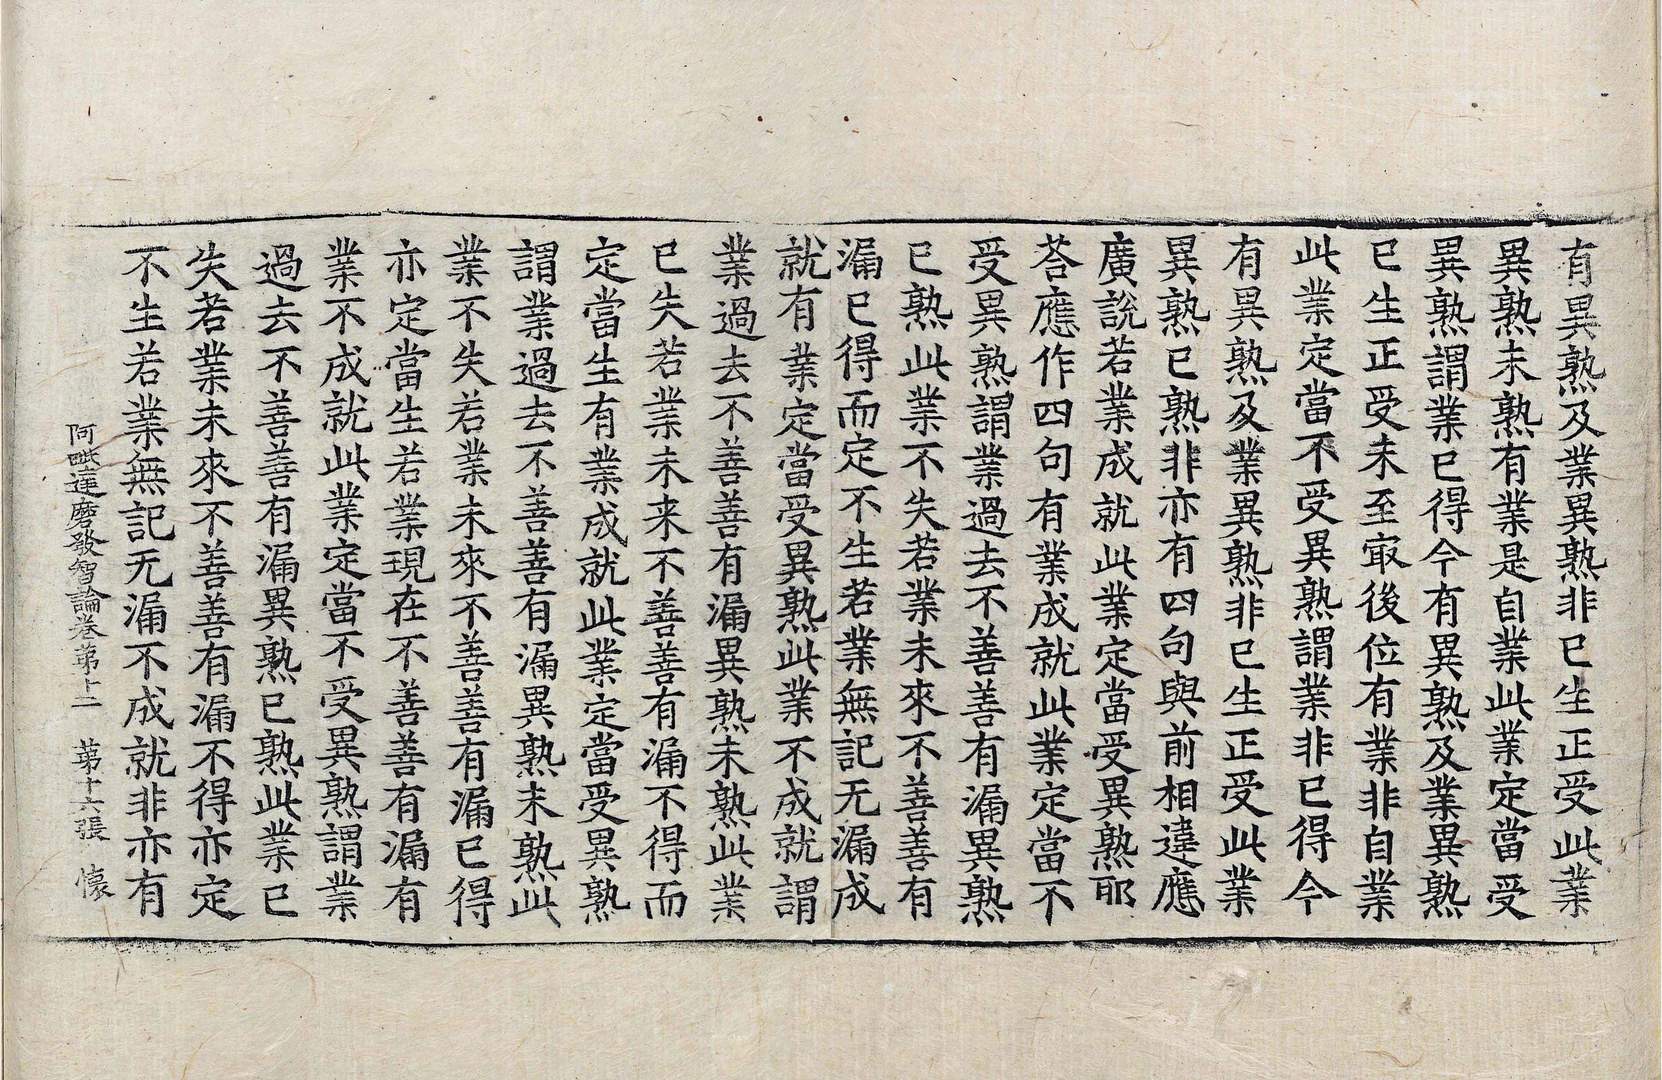 有異熟及業異熟非已生正受此業
異熟未熟有業是自業此業定當受
異熟謂業已得今有異熟及業異熟
已生正受未至㝡後位有業非自業
此業定當不受異熟謂業非已得今
有異熟及業異熟非已生正受此業
異熟已熟非亦有四句與前相違應
廣說若業成就此業定當受異熟耶
荅應作四句有業成就此業定當不
受異熟謂業過去不善善有漏異熟
已熟此業不失若業未來不善善有
漏已得而定不生若業無記无漏成
就有業定當受異熟此業不成就謂
業過去不善善有漏異熟未熟此業
已失若業未来不善善有漏不得而
定當生有業成就此業定當受異熟
謂業過去不善善有漏異熟未熟此
業不失若業未來不善善有漏已得
亦定當生若業現在不善善有漏有
業不成就此業定當不受異熟謂業
過去不善善有漏異熟已熟此業已
失若業未來不善善有漏不得亦定
不生若業無記无漏不成就非亦有
阿毗達磨發智論卷苐十二　苐十六張　懐